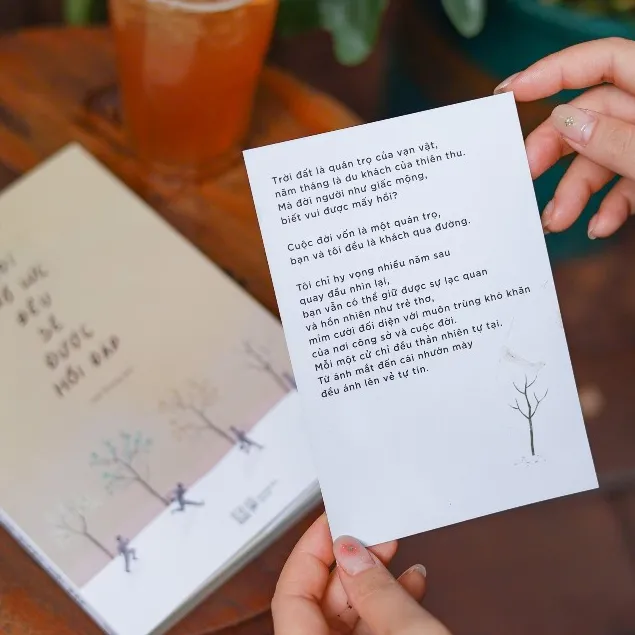 Trời đất là quán trọ của vạn vật,
năm tháng là du khách của thiên thu.
Mà đời người như giấc mộng,
biết vui được mấy hồi?
Cuộc đời vốn là một quán trọ,
bạn và tôi đều là khách qua đường.
Tôi chỉ hy vọng nhiều năm sau
quay đầu nhìn lại,
bạn vẫn có thể giữ được sự lạc quan
và hồn nhiên như trẻ thơ,
mỉm cười đối diện với muôn trùng khó khăn
của nơi công sở và cuộc đời.
Mỗi một cử chỉ đều thản nhiên tự tại.
Từ ánh mắt đến cái nhướn mày
đều ánh lên vẻ tự tin.
ĐỀU
SẼ
ĐƯỢC
HỒI ĐÁP